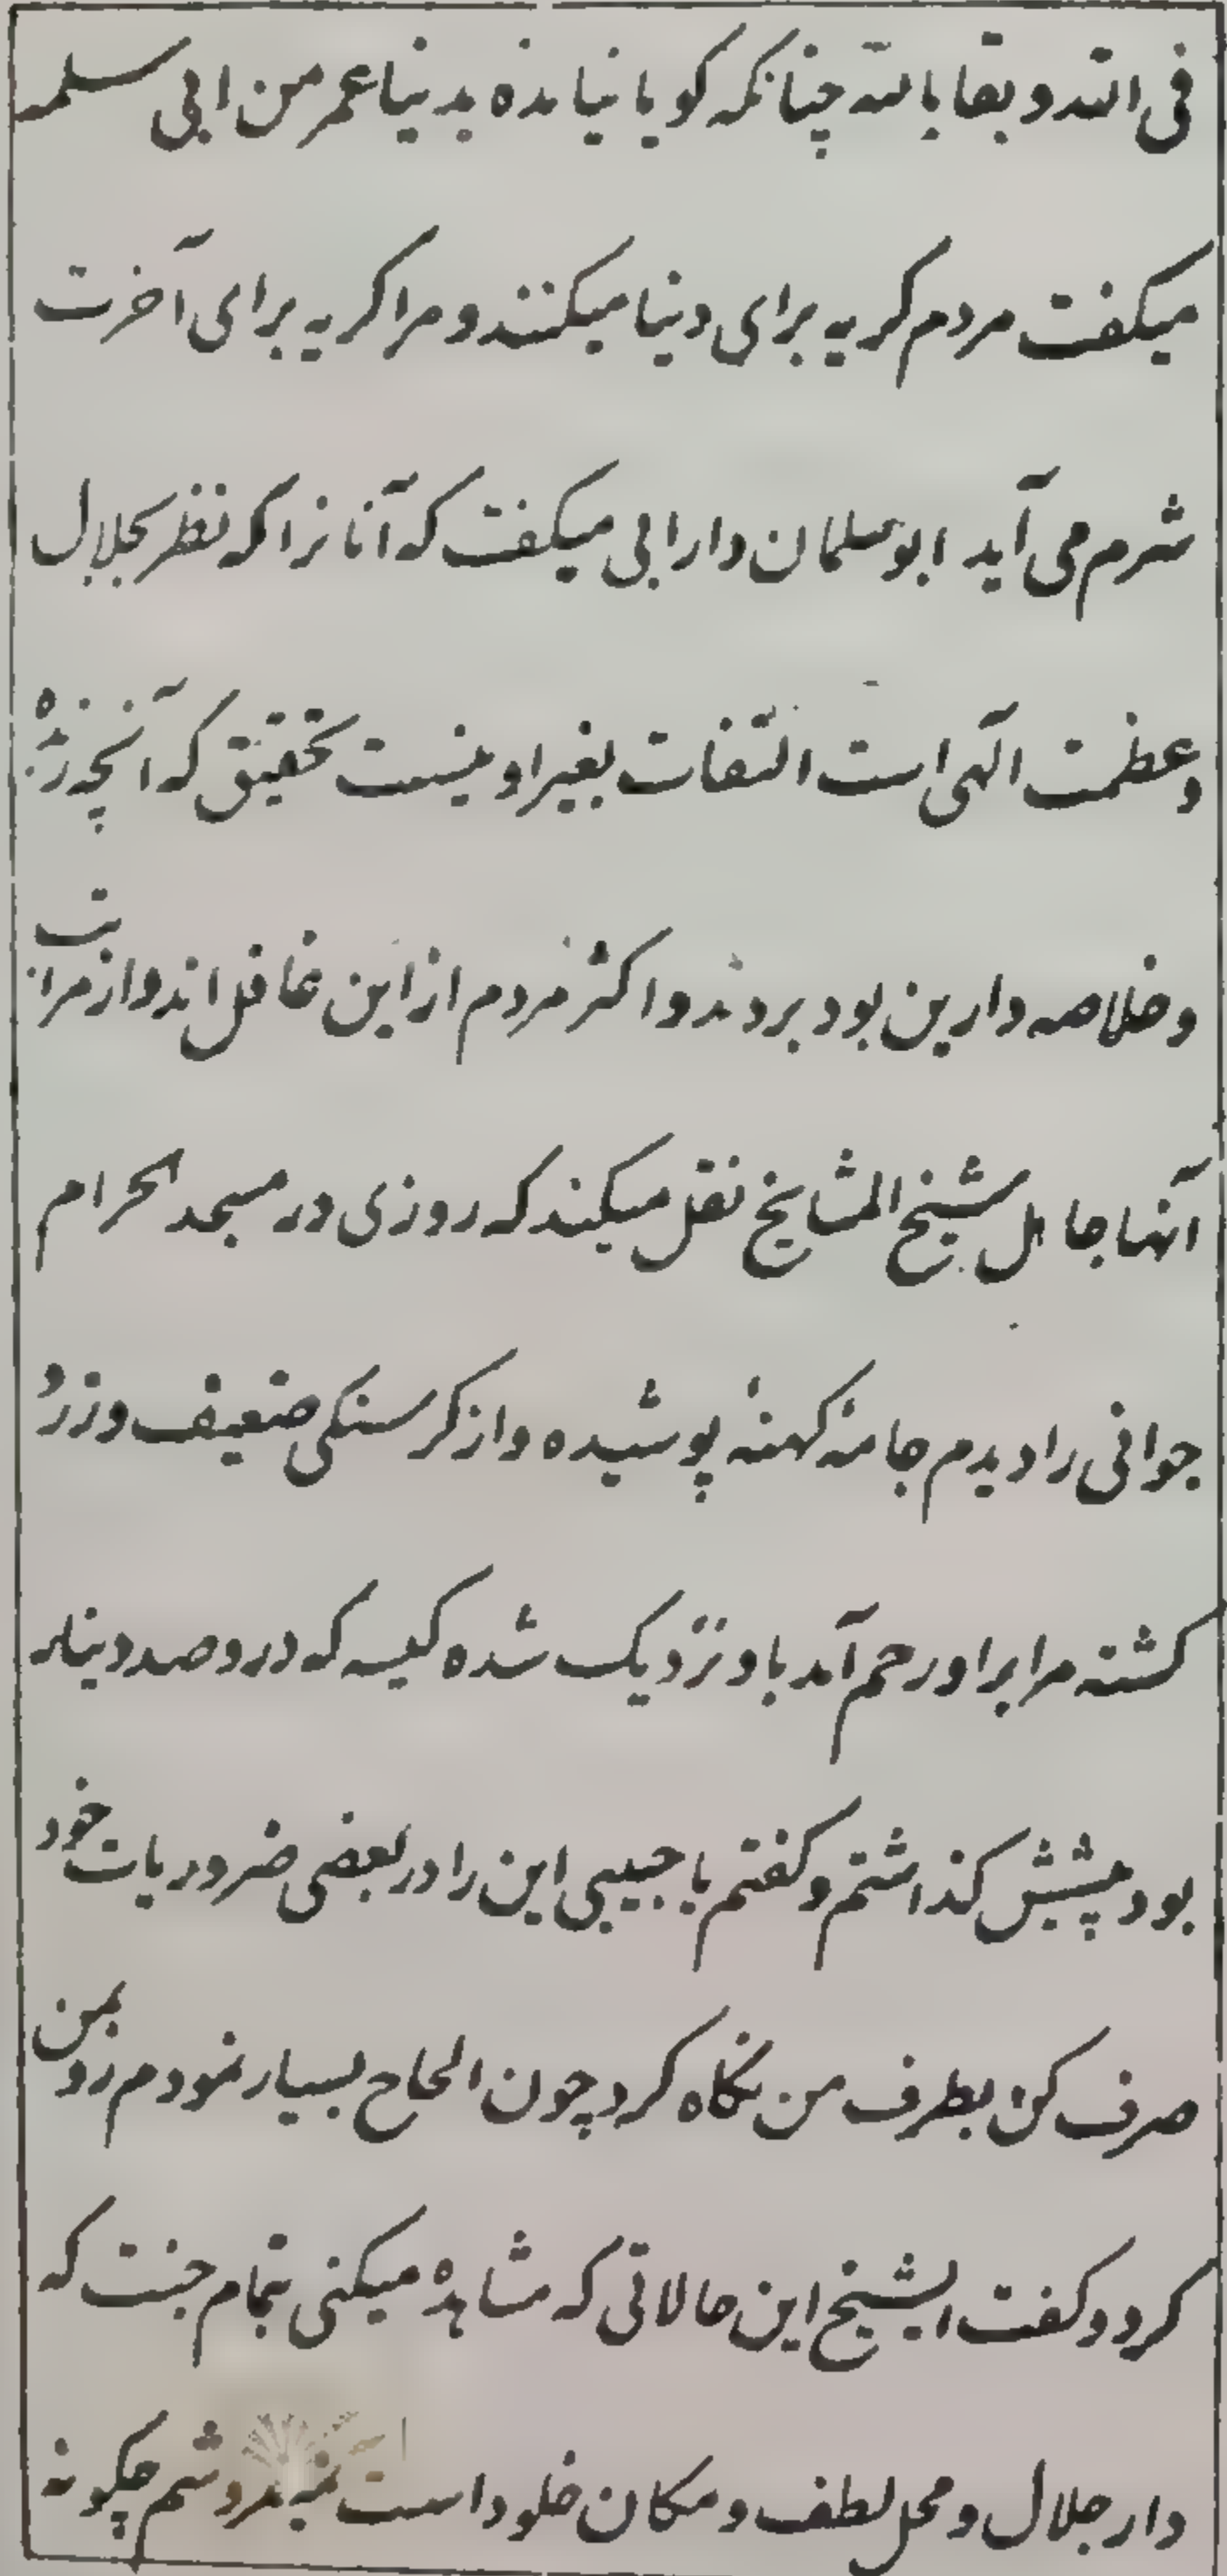 فی الله و بقا بالله چنانکه کویا نیامده بدنیا عمر من ابی سلمه
میکفت مردم کریه برای دنیا میکنند و مرا کریه برای آخرت
شرم می آید ابوسلمان دارابی میکفت که آنانرا که نظر بجلال
و عظمت الهی است التفات بغیر او نیست تحقیق که آنچه زبده
و خلاصه دارین بود بردند و اکثر مردم از این غافل اند و از مراتب
آنها جاهل شیخ المشایخ نقل میکند که روزی در مسجد الحرام
جوانی را دیدم جامهٔ کهنهٔ پوشیده و از کرسنکی ضعیف و زرد
کشته مرا بر او رحم آمد باو نزدیک شده کیسه که در و صد دینار
بود پیشش کذاشتم و کفتم یا حبیبی این را در بعضی ضروریات خود
صرف کن بطرف من نکاه کرد چون الحاح بسیار نمودم رو بمن
کرد و کفت ایشیخ این حالاتی که مشاهده میکنی تمام جنت که
دار جلال و محل لطف و مکان خلود است نمیفروشم چکونه